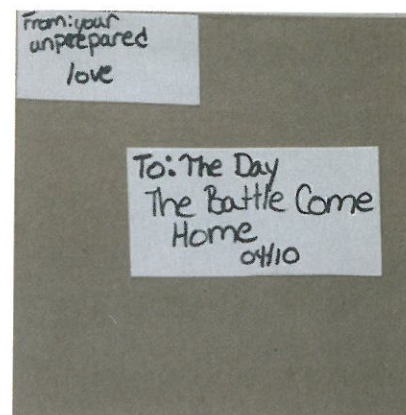 From: your
unprepared
love
To: The Day
The Battle Come
Home
04/10